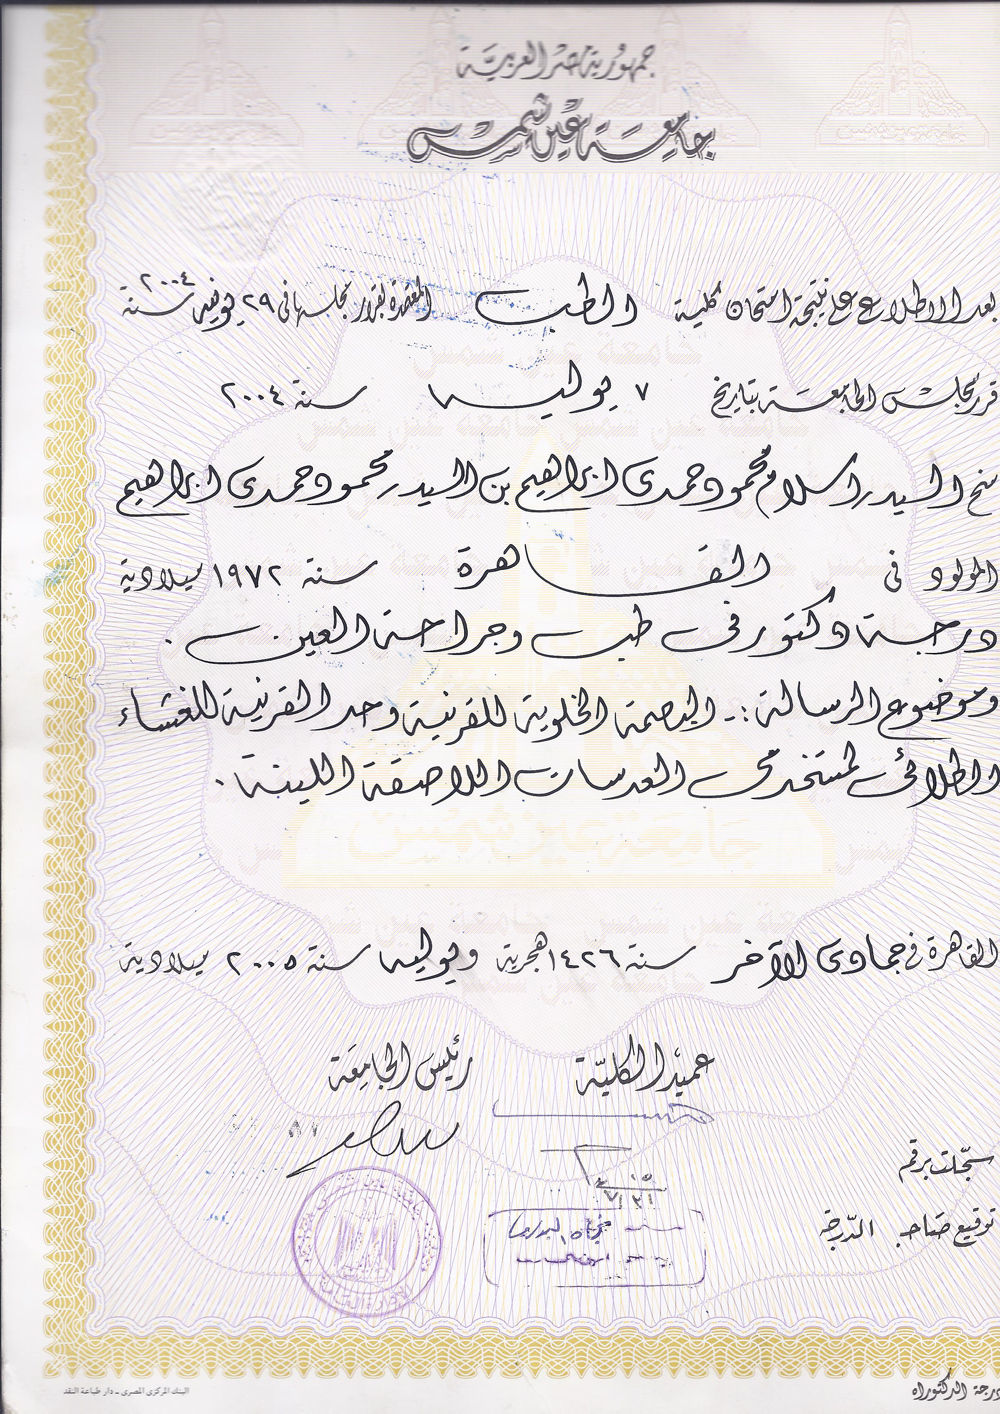 جمهورية مصر العربية
جامعة عين شمس
بعد الاطلاع على نتيجة امتحان كلية الطب المعتمدة بقرار مجلسها في ٢٩ يونيه سنة ٢٠٠٤
قرر مجلس الجامعة بتاريخ ٧ يوليه سنة ٢٠٠٤
منح السيد / اسلام محمود حمدى ابراهيم بن السيد / محمود حمدى ابراهيم
المولود فى القاهرة سنة ١٩٧٢ ميلادية
درجة دكتور فى طب وجراحة العين .
وموضوع الرسالة :- البصمة الخلوية للقرنية وحد القرنية للغشاء
الطلائى لمستخدمى العدسات اللاصقة اللينة .
القاهرة فى جمادى الآخر سنة ١٤٢٦ هجرية ويوليه سنة ٢٠٠٥ ميلادية
عميد الكلية رئيس الجامعة
سجلت برقم
توقيع صاحب الدرجة
البنك المركزى المصرى - دار طباعة النقد
درجة الدكتوراه